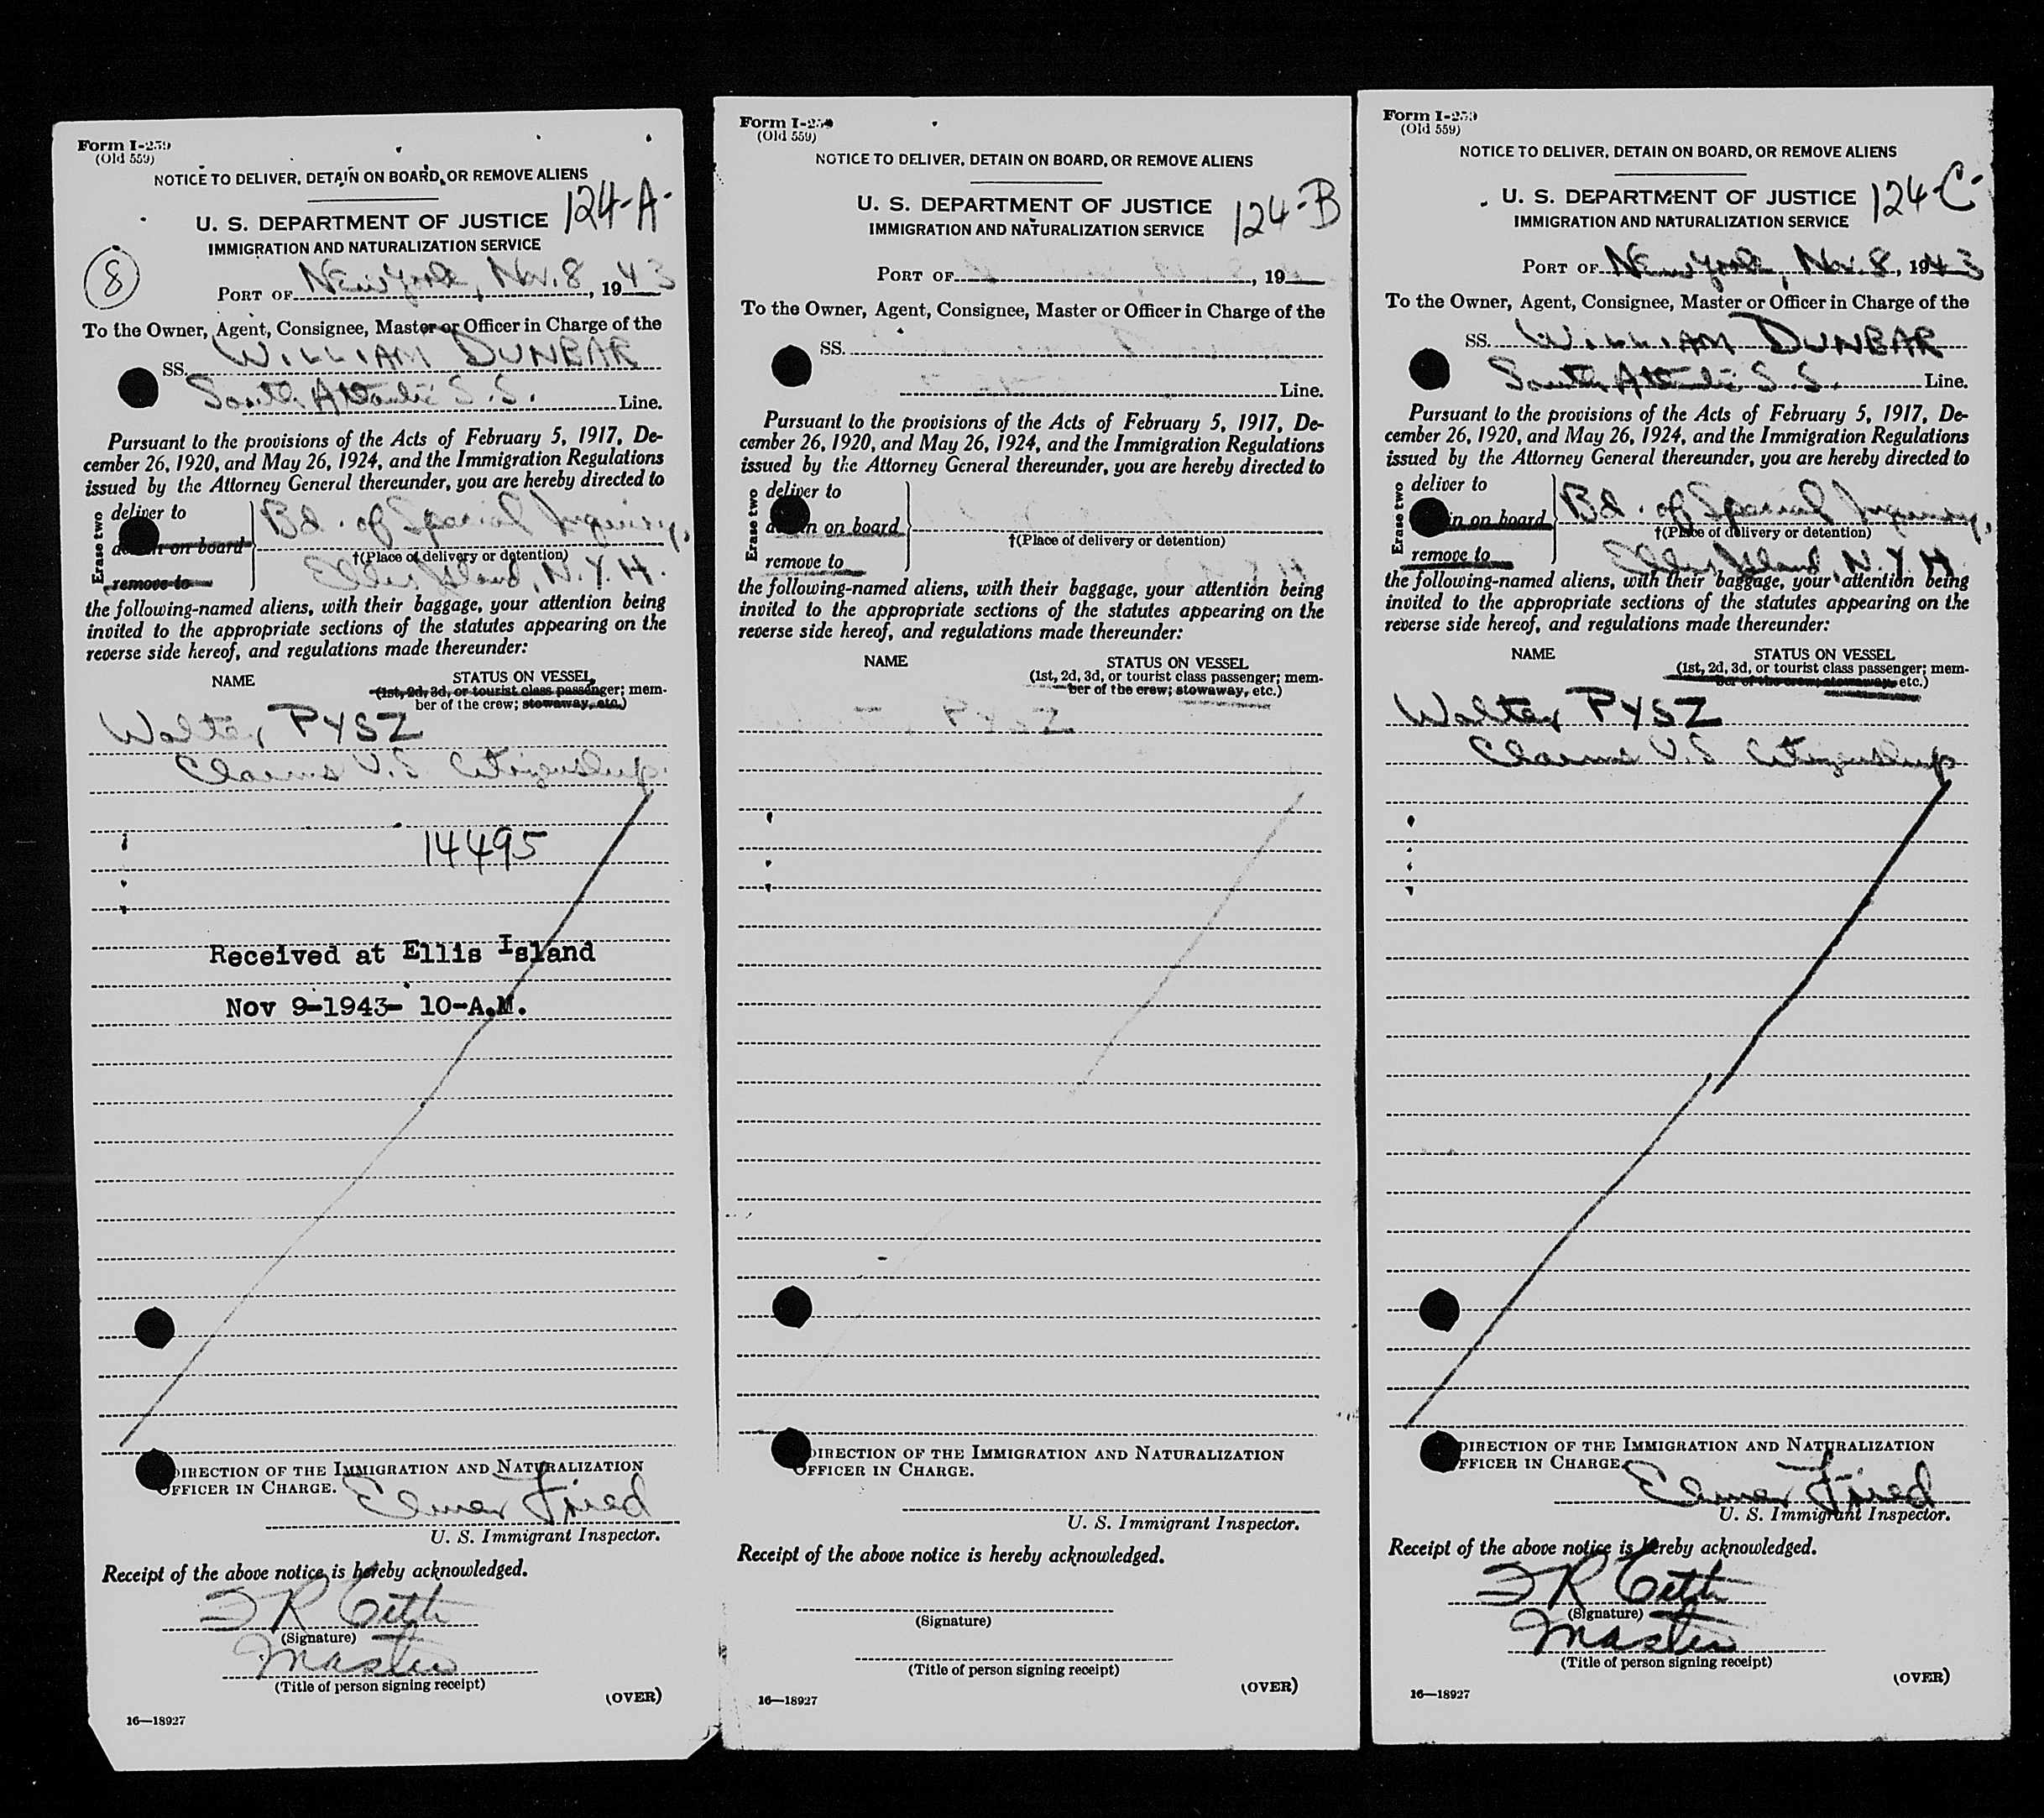 Form I-259
(Old 559)
NOTICE TO DELIVER, DETAIN ON BOARD, OR REMOVE ALIENS
124-A-
U. S. DEPARTMENT OF JUSTICE
IMMIGRATION AND NATURALIZATION SERVICE
8
PORT OF New York, Nov. 8, 1943
To the Owner, Agent, Consignee, Master or Officer in Charge of the
SS. WILLIAM DUNBAR
South Atlantic S.S. Line.
Pursuant to the provisions of the Acts of February 5, 1917, De-
cember 26, 1920, and May 26, 1924, and the Immigration Regulations
issued by the Attorney General thereunder, you are hereby directed to
Erase two
deliver to
on board
remove to
Bd. of Special Inquiry,
†(Place of delivery or detention)
Ellis Island, N.Y.H.
the following-named aliens, with their baggage, your attention being
invited to the appropriate sections of the statutes appearing on the
reverse side hereof, and regulations made thereunder:
NAME
STATUS ON VESSEL
(1st, 2d, 3d, or tourist class passenger; mem-
ber of the crew; stowaway, etc.)
Walter PYSZ
Claims U.S. Citizenship.
14495
Received at Ellis Island
Nov 9-1943- 10-A.M.
DIRECTION OF THE IMMIGRATION AND NATURALIZATION
OFFICER IN CHARGE.
Elmer Fried
U. S. Immigrant Inspector.
Receipt of the above notice is hereby acknowledged.
(Signature)
Master
(Title of person signing receipt)
(OVER)
16—18927
Form I-259
(Old 559)
NOTICE TO DELIVER, DETAIN ON BOARD, OR REMOVE ALIENS
U. S. DEPARTMENT OF JUSTICE
124-B
IMMIGRATION AND NATURALIZATION SERVICE
PORT OF , 19
To the Owner, Agent, Consignee, Master or Officer in Charge of the
SS.
Line.
Pursuant to the provisions of the Acts of February 5, 1917, De-
cember 26, 1920, and May 26, 1924, and the Immigration Regulations
issued by the Attorney General thereunder, you are hereby directed to
Erase two
deliver to
on board
remove to
†(Place of delivery or detention)
the following-named aliens, with their baggage, your attention being
invited to the appropriate sections of the statutes appearing on the
reverse side hereof, and regulations made thereunder:
NAME
STATUS ON VESSEL
(1st, 2d, 3d, or tourist class passenger; mem-
ber of the crew; stowaway, etc.)
PYSZ
DIRECTION OF THE IMMIGRATION AND NATURALIZATION
OFFICER IN CHARGE.
U. S. Immigrant Inspector.
Receipt of the above notice is hereby acknowledged.
(Signature)
(Title of person signing receipt)
(OVER)
16—18927
Form I-259
(Old 559)
NOTICE TO DELIVER, DETAIN ON BOARD, OR REMOVE ALIENS
U. S. DEPARTMENT OF JUSTICE
124-C-
IMMIGRATION AND NATURALIZATION SERVICE
PORT OF New York, Nov. 8, 1943
To the Owner, Agent, Consignee, Master or Officer in Charge of the
SS. WILLIAM DUNBAR
South Atlantic S.S. Line.
Pursuant to the provisions of the Acts of February 5, 1917, De-
cember 26, 1920, and May 26, 1924, and the Immigration Regulations
issued by the Attorney General thereunder, you are hereby directed to
Erase two
deliver to
in on board
remove to
Bd. of Special Inquiry,
†(Place of delivery or detention)
Ellis Island, N.Y.H.
the following-named aliens, with their baggage, your attention being
invited to the appropriate sections of the statutes appearing on the
reverse side hereof, and regulations made thereunder:
NAME
STATUS ON VESSEL
(1st, 2d, 3d, or tourist class passenger; mem-
ber of the crew; stowaway, etc.)
Walter PYSZ
Claims U.S. Citizenship
DIRECTION OF THE IMMIGRATION AND NATURALIZATION
OFFICER IN CHARGE.
Elmer Fried
U. S. Immigrant Inspector.
Receipt of the above notice is hereby acknowledged.
(Signature)
Master
(Title of person signing receipt)
(OVER)
16—18927